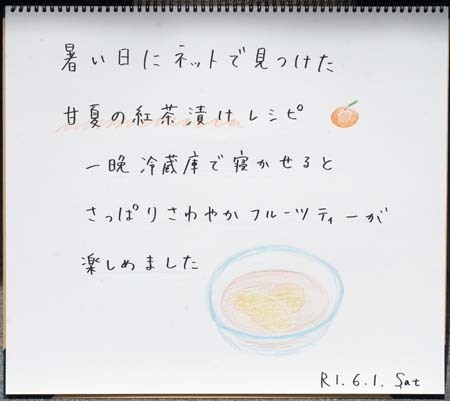 暑い日にネットで見つけた
甘夏の紅茶漬けレシピ
一晩冷蔵庫で寝かせると
さっぱりさわやかフルーツティーが
楽しめました
R1.6.1. Sat